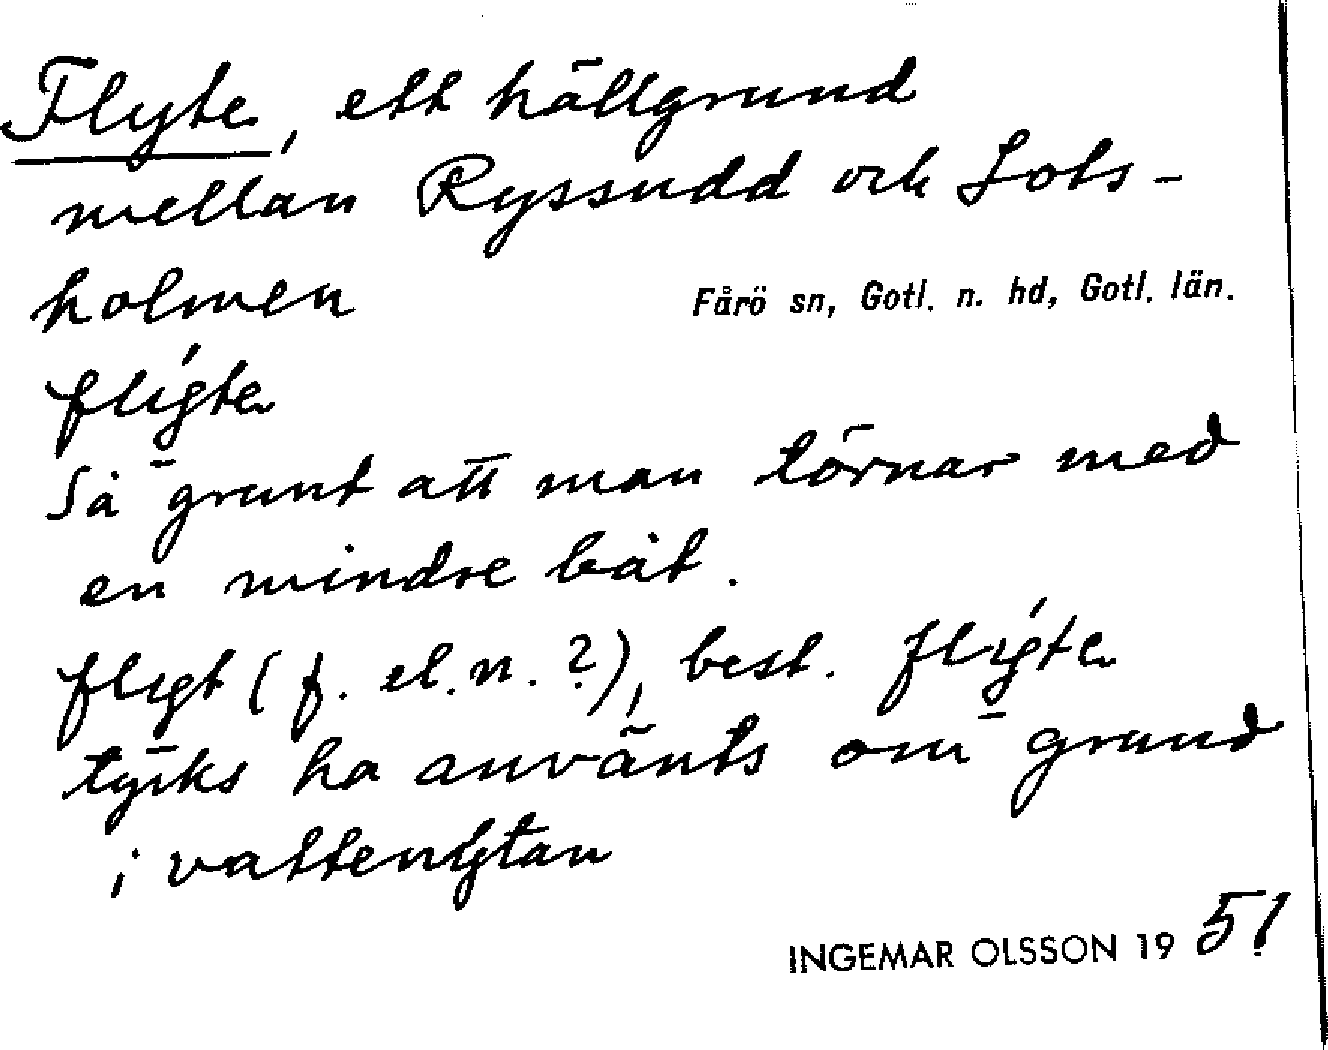 Flyte, ett hällgrund
mellan Ryssudd och Lots-
holmen
Fårö sn, Gotl. n. hd, Gotl. län.
flýte
Så grunt att man törnar med
en mindre båt.
flyt (f. el. n. ?), best. flýte
tycks ha använts om grund
i vattenytan
INGEMAR OLSSON 1951